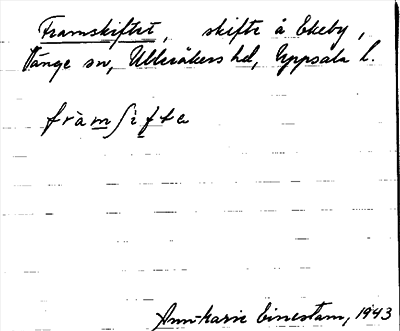 Framskiftet, skifte å Ekeby,
Vänge sn, Ulleråkers hd, Uppsala l.
fràmʃifte
Ann-Karin Einestam, 1943